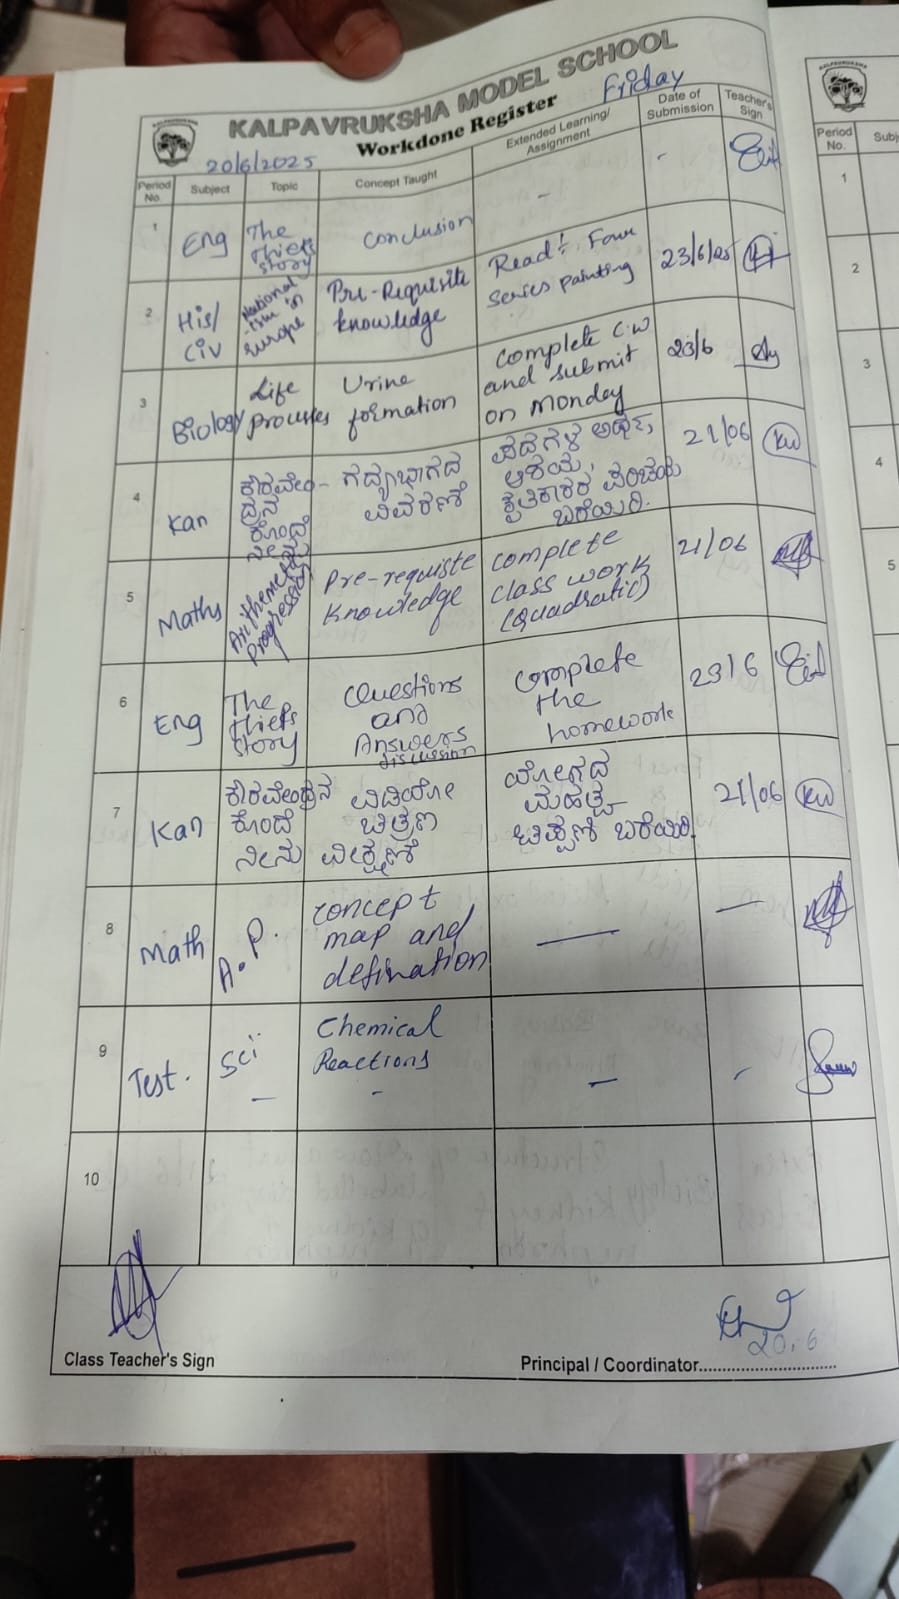 KALPAVRUKSHA MODEL SCHOOL
Workdone Register
Friday
20/6/2025
Period No. Subject Topic Concept Taught Extended Learning/ Assignment Date of Submission Teacher's Sign
1 Eng The thiefs story Conclusion - -
2 His/Civ National-ism in Europe Pre-Requisite knowledge Read: Four series painting 23/6/25
3 Biology Life processes Urine formation Complete C.W and submit on Monday 23/6
4 Kan ಕೌರವೇಂ-ದ್ರನ ಕೊಂದೆ ನೀನು ಗದ್ಯಭಾಗದ ವಿವರಣೆ ಪದಗಳ ಅರ್ಥ, ಆಶಯ, ಕೃತಿಕಾರರ ಪರಿಚಯ ಬರೆಯಿರಿ. 21/06 KW
5 Maths Arithemetic Progression Pre-requiste knowledge complete class work (quadratic) 21/06
6 Eng The thiefs story Questions and Answers discussion Complete the homework 23/6
7 Kan ಕೌರವೇಂದ್ರನ ಕೊಂದೆ ನೀನು ವಿಡಿಯೋ ಚಿತ್ರಣ ವೀಕ್ಷಣೆ ಯೋಗದ ಮಹತ್ವ ಟಿಪ್ಪಣಿ ಬರೆಯಿರಿ. 21/06 KW
8 Math A.P. concept map and defination — —
9 Test. Sci - Chemical Reactions - - -
10
20.6
Class Teacher's Sign Principal / Coordinator..............................
KALPAVRUKSHA
Period No. Subj
1
2
3
4
5